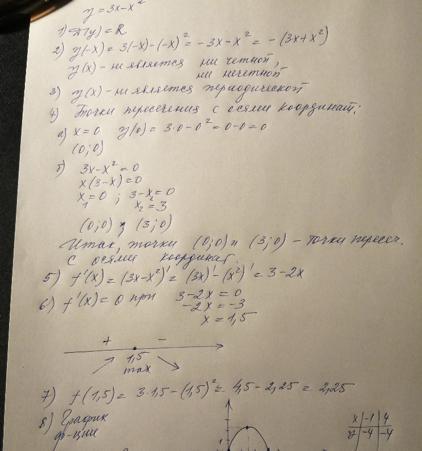 y = 3x-x²
1) D(y) = R
2) y(-x) = 3(-x)-(-x)² = -3x-x² = -(3x+x²)
y(x) - не является ни четной,
ни нечетной
3) y(x) - не является периодической
4) Точки пересечения с осями координат:
а) x=0 y(0) = 3·0-0² = 0-0=0
(0;0)
б) 3x-x²=0
x(3-x)=0
x₁=0 ; 3-x₂=0
x₂=3
(0;0) и (3;0)
Итак, точки (0;0) и (3;0) - точки пересеч.
с осями координат.
5) f'(x) = (3x-x²)' = (3x)' - (x²)' = 3-2x
6) f'(x) = 0 при 3-2x = 0
-2x = -3
x = 1,5
+ -
1,5
max
7) f(1,5) = 3·1,5-(1,5)² = 4,5-2,25 = 2,25
8) График x | -1 | 4
ф-ции y | -4 | -4
1